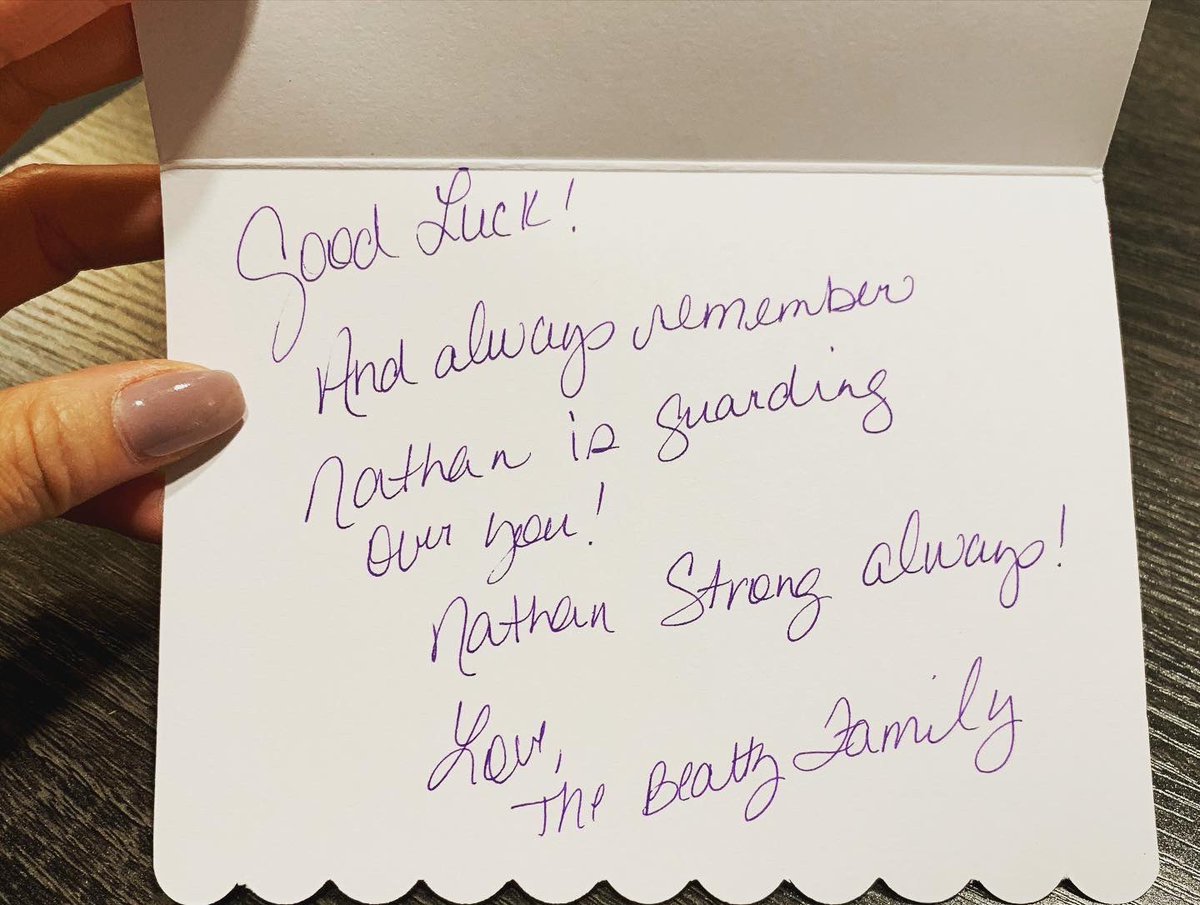 Good Luck!
And always remember
Nathan is guarding
over you!
Nathan Strong always!
Love,
The Beatty Family